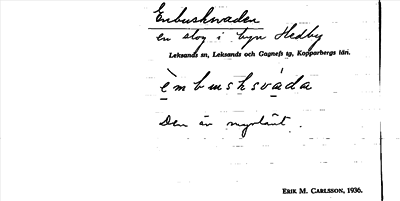 Enbuskvaden
en slog i byn Hedby
Leksands sn, Leksands och Gagnefs tg, Kopparbergs län.
èmbusksváda
Den är myrlänt.
ERIK M. CARLSSON, 1936.